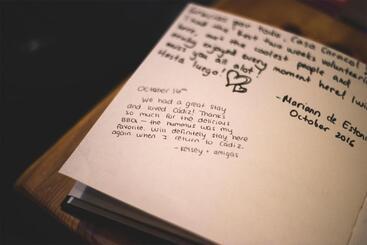 Gracias por todo, Casa Caracol
I had the best two weeks volunteering
here, met the coolest people and
really enjoyed every moment here! I will
miss you all a lot!
Hasta luego!
-Mariann de Estonia
October 2016
October 16th
We had a great stay
and loved Cádiz! Thanks
so much for the delicious
BBQ - the hummus was my
favorite. Will definitely stay here
again when I return to Cádiz.
-Kelsey + amigas